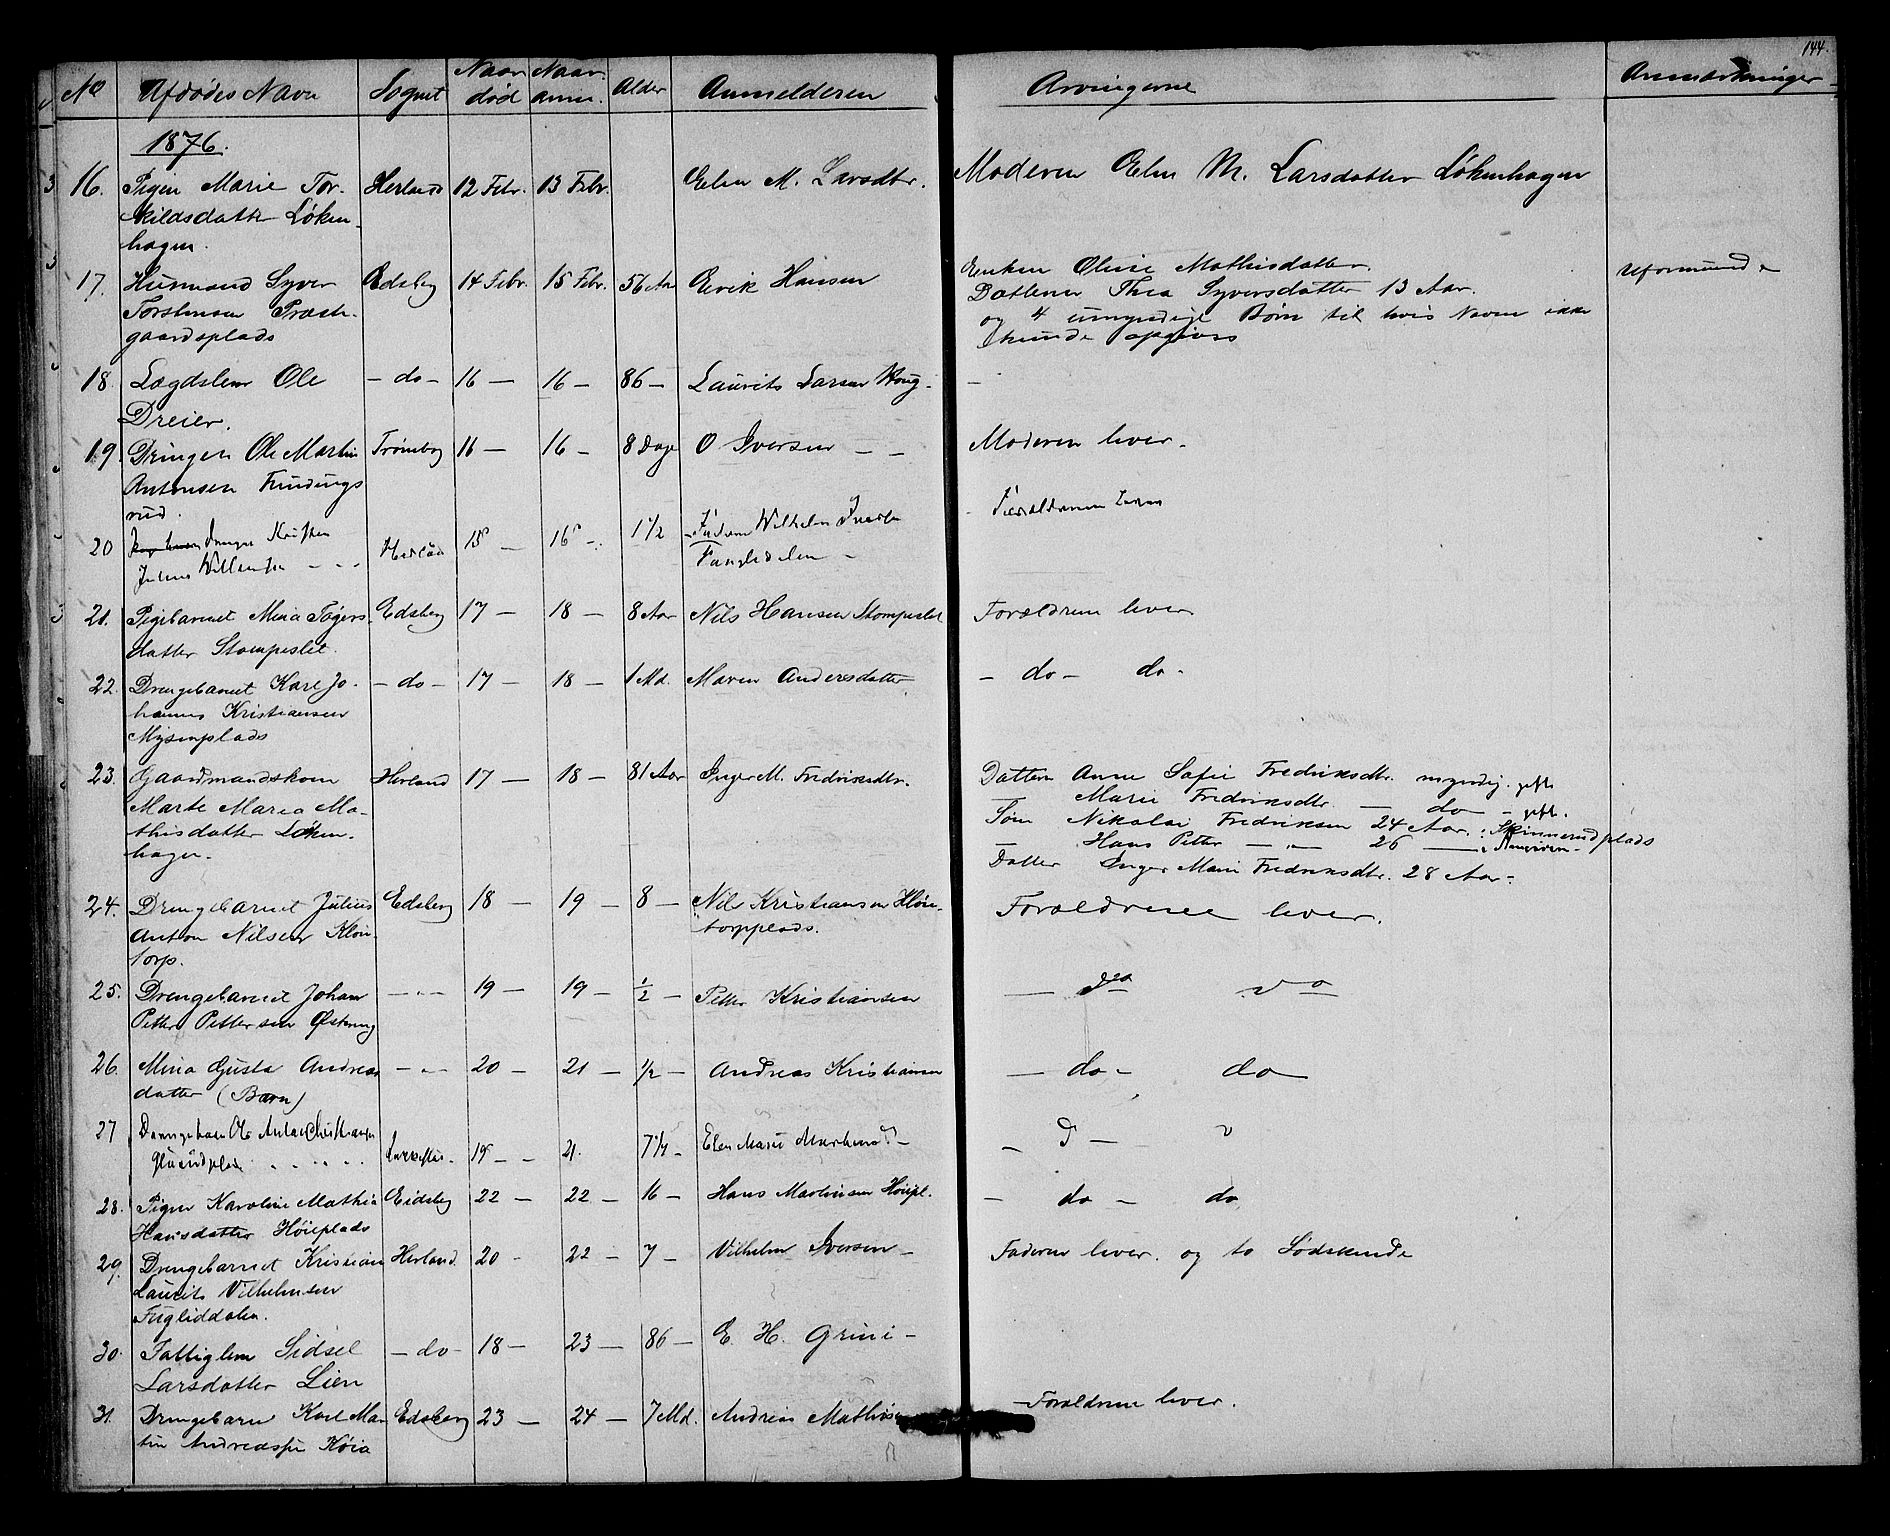 144.
No Afdødes Navn Sognet Naar død Naar anm. Alder Anmelderen Arvingerne Anmærkninger
1876.
16. Pigen Marie Tor- Herland 12 Febr. 13 Febr. Elen M. Larsdtr. Moderen Elen M. Larsdatter Løkenhagen
kildsdatter Løken-
hagen.
17. Husmand Syver Edsberg 14 Febr. 15 Febr. 56 Aar Eerik Hansen Enken Olise Mathisdatter Uformuende
Torstensen Præste- Datteren Thea Syversdatter 13 Aar.
gaardsplads og 4 umyndige Børn til hvis Navne ikke
kunde opgives
18. Lægdslem Ole - do - 16 - 16 - 86 - Laurits Larsen Houg. -
Dreier.
19. Drengen Ole Martin Trømborg 16 - 16 - 8 Dage O Iversen - - Moderen lever.
Antonsen Finnings
rud.
20 Drenge Kristen Herland 15 - 16 - 1 1/2 Faderen Wilhelm Forældrene lever
Julius Willumsen - - Fugledalen -
21. Pigebarnet Mina Tøgers- Edsberg 17 - 18 - 8 Aar Nils Hansen Stompeslet Forældrene lever
datter Stompeslet.
22. Drengebarnet Karl Jo- - do - 17 - 18 - 1 Md. Maren Andersdatter - do - do -
hannes Kristiansen
Mysenplads
23. Gaardmandskone Herland 17 - 18 - 81 Aar Inger M. Fredriksdtr. Datteren Anne Sofie Fredriksdtr. myndig. gift
Marte Maria Ma- - Marie Fredriksdtr. - do - gift.
thisdatter Løken- Søn Nikolai Fredriksen 24 Aar. Skinnerudplads
hagen. Hans Petter - " - 26 -
Datter Inger Marie Fredriksdtr. 28 Aar.
24. Drengebarnet Julius Edsberg 18 - 19 - 8 - Nils Kristiansen Kløn- Forældrene lever.
Anton Nilsen Kløn- torpplads.
torp.
25. Drengebarnet Johan - " - 19 - 19 - 1/2 - Petter Kristiansen - do do
Petter Pettersen Østereng
26. Mina Gusta Andreas - " - 20 - 21 - 1/2 - Andreas Kristiansen - do - do
datter (Barn)
27 Drengebarn Ole Anton Christiansen 19 - - 21. 7 1/2 - Elen Marie - d - d
28. Pigen Karoline Mathia Eidsberg 22 - 22 - 16 - Hans Martinsen Høiepl. - do - do
Hansdatter Høieplads
29. Drengebarnet Kristian Herland. 20 - 22 - 7 - Vilhelm Iversen - Faderen lever. og to Sødskende
Laurits Vilhelmsen
Fugliddalen.
30. Fattiglem Sidsel - do - 18 - 23 - 86 - E. H. Grini -
Larsdatter Lien
31. Drengebarn Karl Mar- Edsberg 23 - 24 - 7 Md. Andreas - Forældrene lever.
tin Andreassen Høia